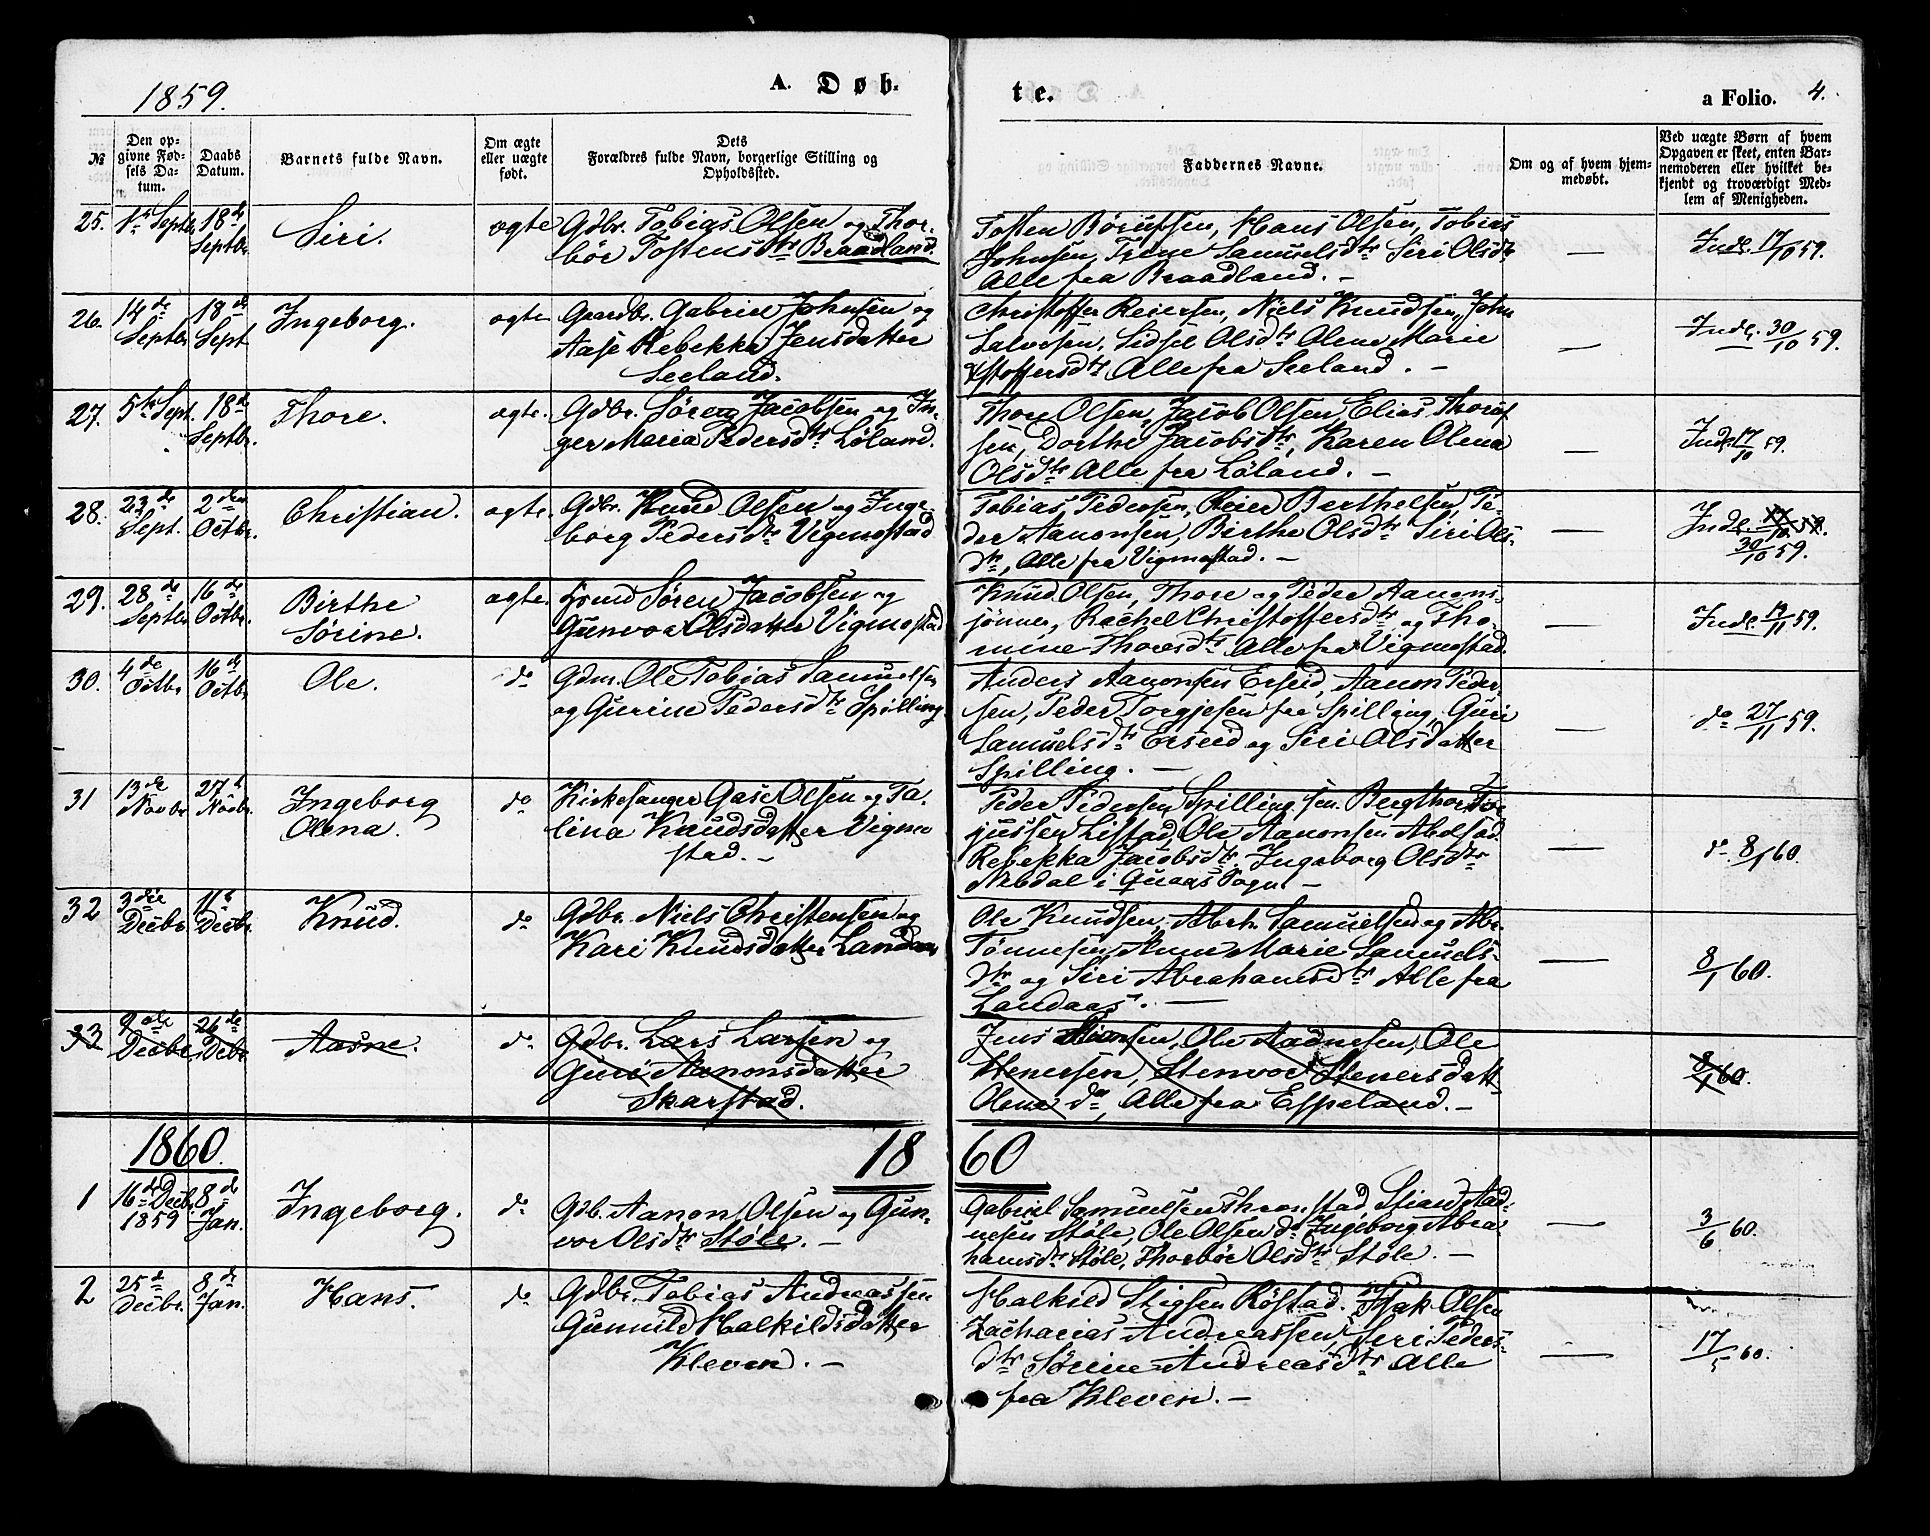 1859.
A. Døb-
te.
a Folio. 4.
№
Den op-
givne Fød-
sels Da-
tum.
Daabs
Datum.
Barnets fulde Navn.
Om ægte
eller uægte
født.
Dets
Forældres fulde Navn, borgerlige Stilling og
Opholdssted.
Faddernes Navne.
Om og af hvem hjem-
medøbt.
Ved uægte Børn af hvem
Opgaven er skeet, enten Bar-
nemoderen eller hvilket be-
kjendt og troværdigt Med-
lem af Menigheden.
25. 1ste Septbr 18de
Septbr.
Siri.
ægte
Gdbr. Tobias Olsen og Thor-
bør Tostensdtr Braadland.
Tosten Børufsen, Hans Olsen, Tobias
Johnsen, Trene Samuelsdtr Siri Olsdtr
Alle fra Braadland. –
—
Indl. 17/10 59.
26. 14de
Septbr 18de
Sept
Ingeborg.
ægte
Gaardbr. Gabriel Johnsen og
Aase Rebekka Jensdatter
Seeland.
Christoffer Reiersen, Niels Knudsen, John
Salvesen, Sidsel Olsdtr Olene Marie
Xstoffersdtr Alle fra Seeland. –
—
Indl. 30/10 59.
27. 5te Sept. 18de
Septbr.
Thore.
ægte.
Gdbr. Søren Jacobsen og In-
ger Maria Pedersdtr Löland.
Thore Olsen, Jacob Olsen, Elias Thoras
sen, Dorthe Jacobsdtr, Karen Olena
Olsdtr Alle fra Löland. –
—
Indl 17/10 59.
28. 23de
Sept. 2den
Octbr.
Christian.
ægte.
Gdbr. Knud Olsen og Inge-
borg Pedersdtr Vigmostad
Tobias Pedersen, Reier Berthelsen, Pe-
der Aanonsen, Birthe Olsdtr Siri Ols-
dtr, Alle fra Vigmostad. –
—
Indl. 17/10 59.
30/10 59.
29. 28de
Septbr 16de
Octbr.
Birthe
Sørine.
ægte.
Hsmd Søren Jacobsen og
Gunvor Olsdatter Vigmostad
Knud Olsen, Thore og Peder Aanons-
sønner, Rachel Christoffersdtr og Tho-
mine Thoresdtr Alle fra Vigmostad.
—
Indl. 13/11 59.
30. 4de
Octbr 16de
Octbr
Ole.
do
Gdm. Ole Tobias Samuelsen
og Gurine Pedersdtr Spilling.
Anders Aanonsen Erseid, Aanon Peder-
sen, Peder Torgjesen fra Spilling, Guri
Samuelsdtr Erseid og Siri Olsdatter
Spilling. –
—
do 27/11 59.
31 13de
Novbr 27de
Novbr.
Ingeborg
Olena.
do
Kirkesanger Gase Olsen og Ta-
lina Knudsdatter Vigmo
stad. –
Peder Pedersen Spilling, sen. Bergthor Tor
jussen Listad, Ole Aanonsen Abelstad
Rebekka Jacobsdtr Ingeborg Olsdtr
Nebdal i Quaas Sogn –
—
do 8/1 60.
32 3die
Decbr. 11te
Decbr.
Knud.
do
Gdbr. Niels Christensen og
Kari Knudsdatter Landaas
Ole Knudsen, Abrh. Samuelsen og Abr.
Tønnesen, Anne Marie Samuels-
dtr og Siri Abrahamsdtr Alle fra
Landaas. –
—
8/1 60.
33 9de
Decbr. 26de
Decbr
Aasne.
do
Gdbr. Lars Larsen og
Guri Aanonsdatter
Skarstad.
Jens Stiansen, Ole Aadnesen, Ole
Stenersen, Stenvor Stenersdatt
Olena do, Alle fra Espeland. –
8/1 60.
1860.
18 60
1 16de Decbr
1859 8de
Jan.
Ingeborg.
do
Gdb. Aanon Olsen og Gun-
vor Olsdtr Støle. –
Gabriel Samuelsen Thronstad, Stian Aad-
nesen Støle, Ole Olsen do Ingeborg Abra
hamsdtr Støle, Thorbør Olsdtr Støle. –
—
3/6 60.
2 25de
Decbr. 8de
Jan.
Hans.
do
Gdbr. Tobias Andreassen
Gunuld Halkildsdatter
Kleven. –
Halkild Stigsen Røstad. Isak Olsen
Zacharias Andreassen, Seri Peders-
dtr Sørine Andreasdtr Alle
fra Kleven. –
—
17/5 60.